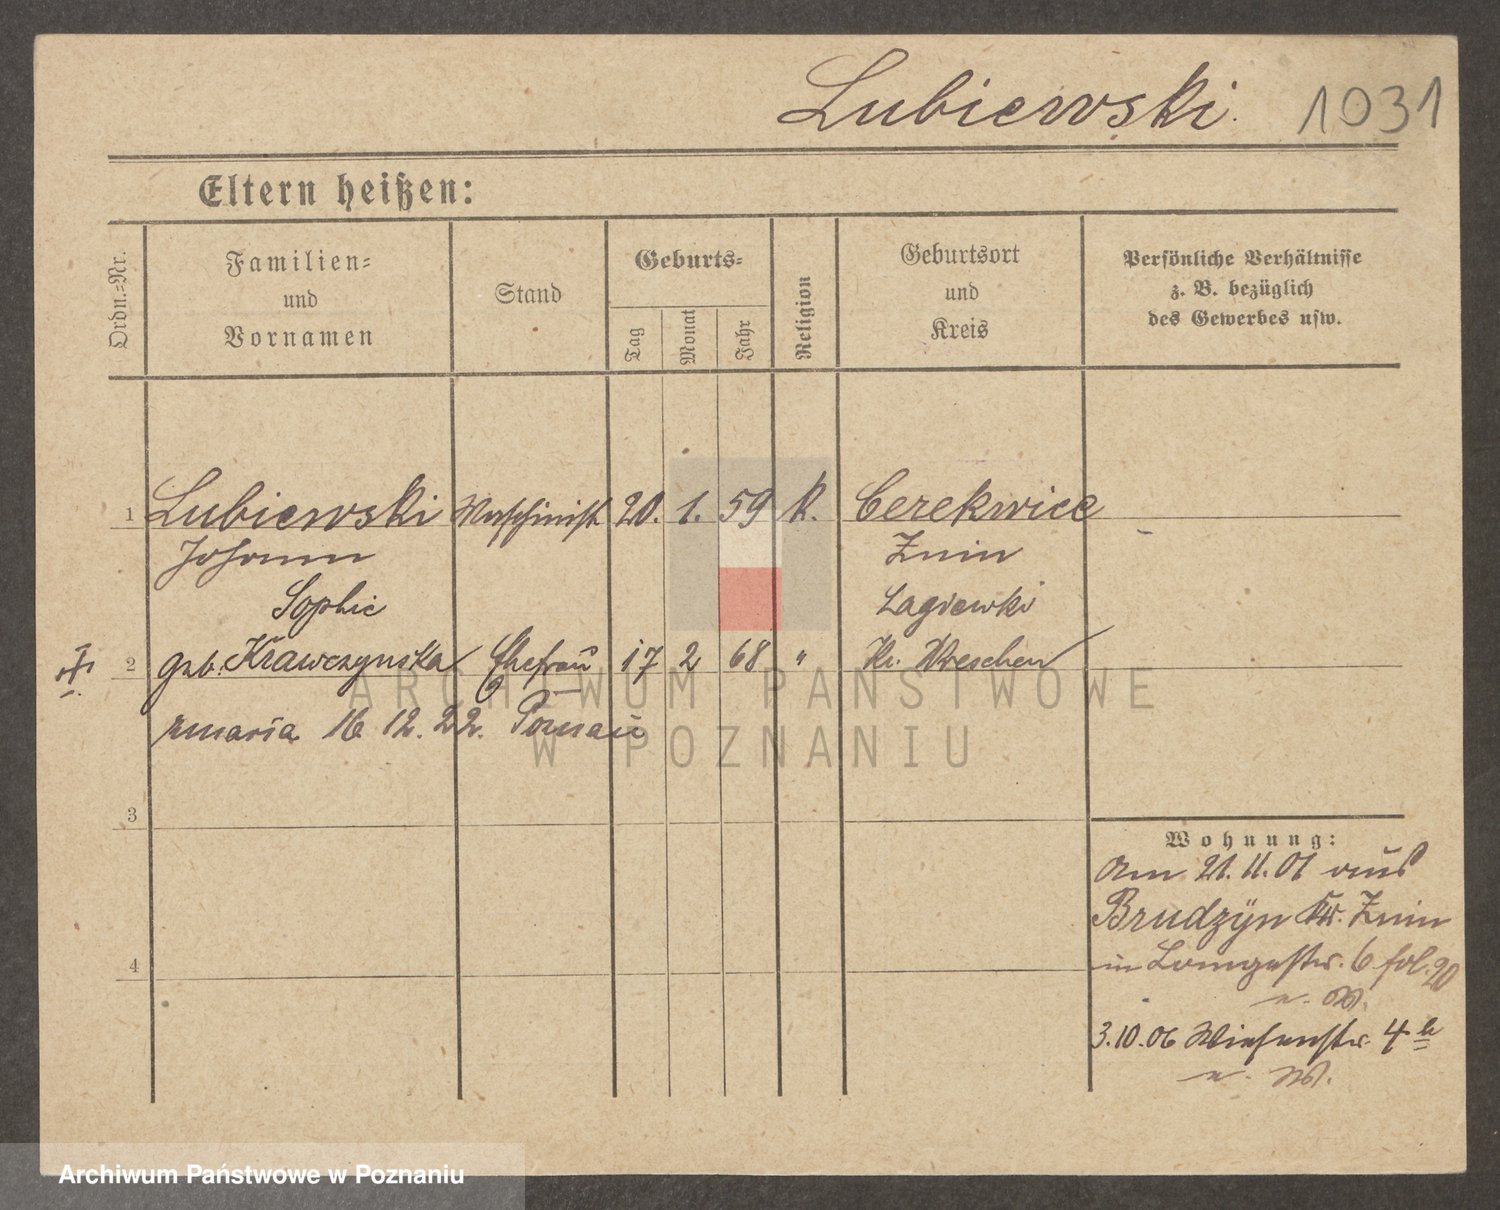 Lubiewski. 1031
Eltern heißen:
Ordn.-Nr.
Familien-
und
Vornamen
Stand
Geburts-
Tag
Monat
Jahr
Religion
Geburtsort
und
Kreis
Persönliche Verhältnisse
z. B. bezüglich
des Gewerbes usw.
1 Lubiewski Maschinist 20. 1. 59 k. Cerekwice
Johann Znin
Sophie Lagiewki
2 geb. Krawczynska Ehefrau 17 2 68 " Kr. Wreschen
zmarła 16 12. 22. Poznań
3
4
Wohnung:
Am 21. 11. 01 aus
Brudzyn Kr. Znin
in 6 fol. 20
3.10.06 Wiesenstr. 4
ARCHIWUM PAŃSTWOWE
W POZNANIU
Archiwum Państwowe w Poznaniu